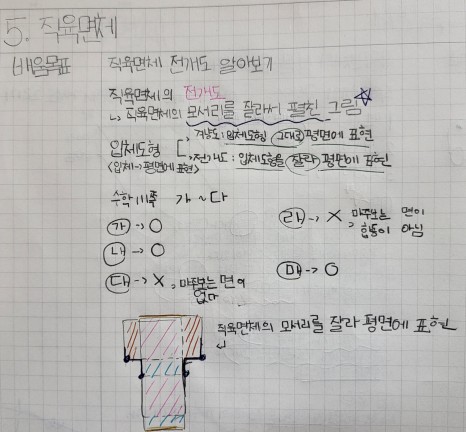 5. 직육면체
배움목표 직육면체 전개도 알아보기
직육면체의 전개도
↳ 직육면체의 모서리를 잘라서 펼친 그림 ☆
입체도형 → 겨냥도: 입체도형 그대로 평면에 표현
<입체→평면에 표현> → 전개도: 입체도형을 잘라 평면에 표현
수학 111쪽 가~다
가 → ○
나 → ○
다 → X 마주보는 면이 없다
라 → X 마주보는 면이 합동이 아님
마 → ○
직육면체의 모서리를 잘라 평면에 표현